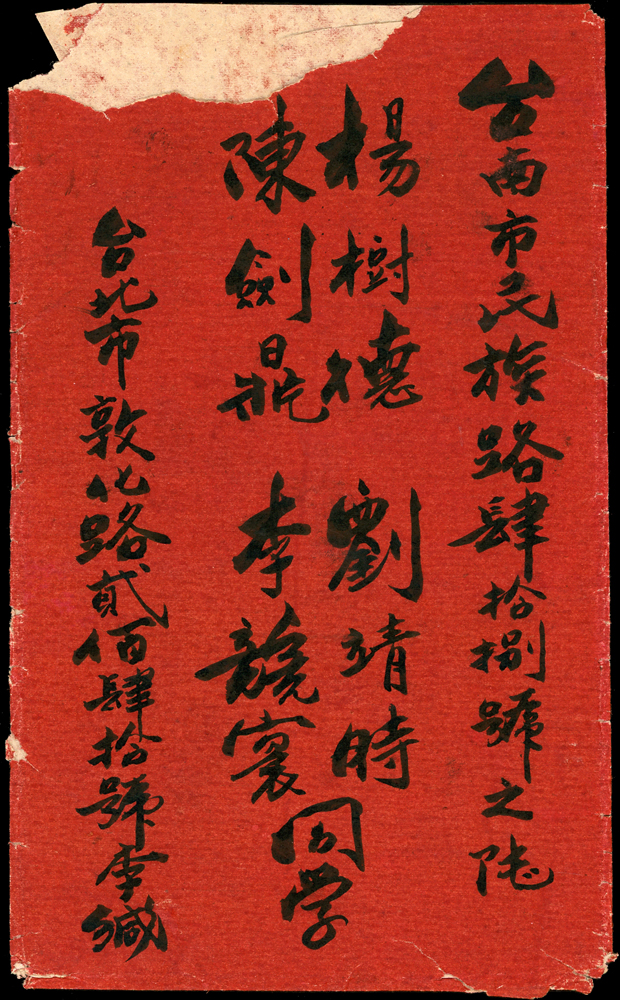 台南市民族路肆拾捌號之陸
楊樹德 劉靖時
陳劍鼎 李競寰
同学
台北市敦化路貳佰肆拾號李緘